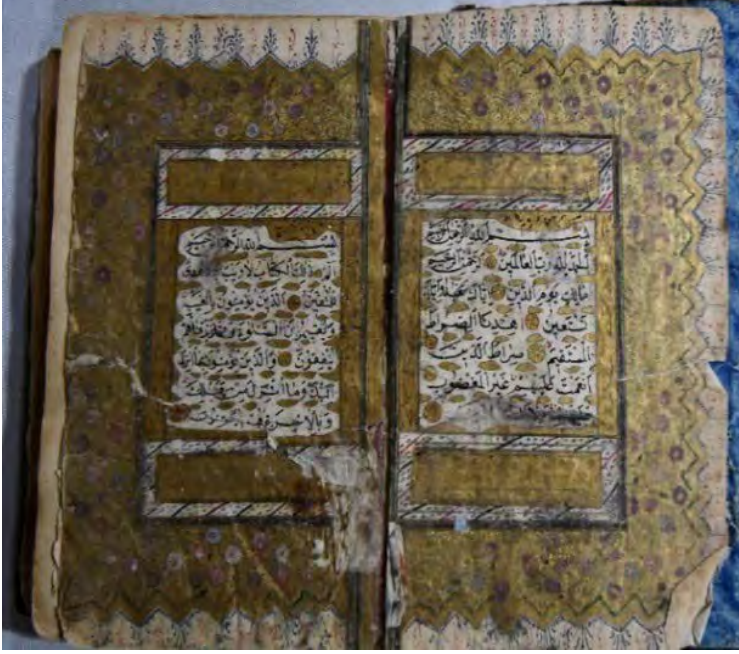 بسم الله الرحمن الرحيم
الحمد لله رب العالمين الرحمن الرحيم
مالك يوم الدين اياك نعبد واياك
نستعين اهدنا الصراط
المستقيم صراط الذين
انعمت عليهم غير المغضوب
بسم الله الرحمن الرحيم
الم ذلك الكتاب لا ريب فيه هدى
للمتقين الذين يؤمنون بالغيب
ويقيمون الصلوة ومما رزقناهم
ينفقون والذين يؤمنون بما انزل
اليك وما انزل من قبلك
وبالاخرة هم يوقنون